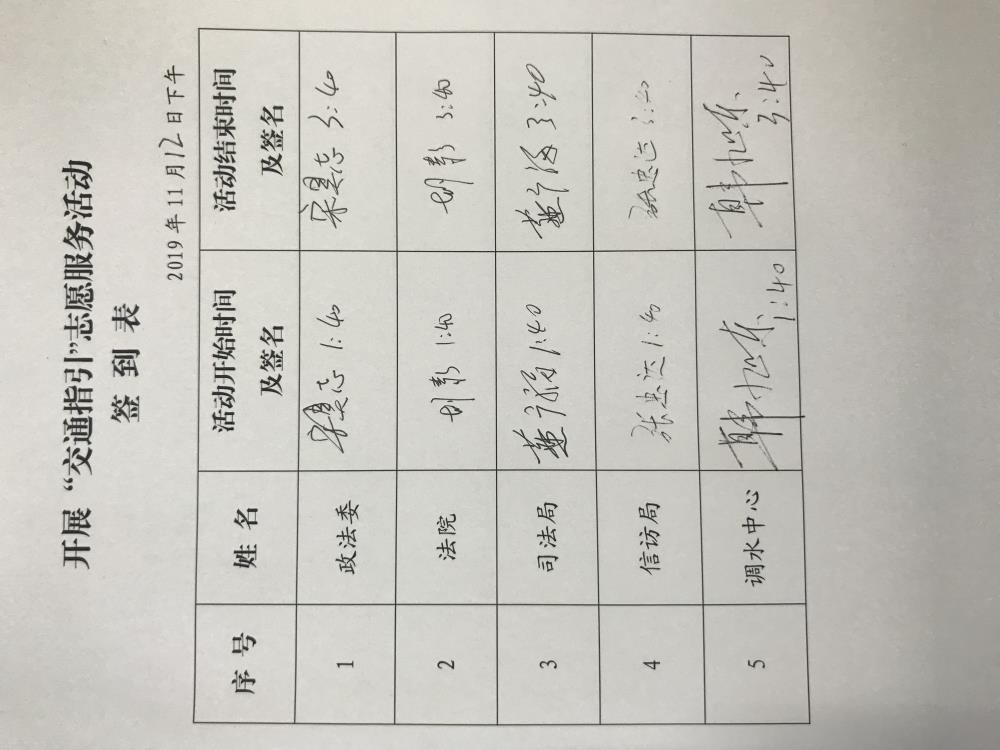 开展“交通指引”志愿服务活动
签到表
2019年11月12日下午
序号 姓名 活动开始时间及签名 活动结束时间及签名
1 政法委 1:40 3:40
2 法院 1:40 3:40
3 司法局 1:40 3:40
4 信访局 张忠达 1:40 张忠达 3:40
5 调水中心 1:40 3:40